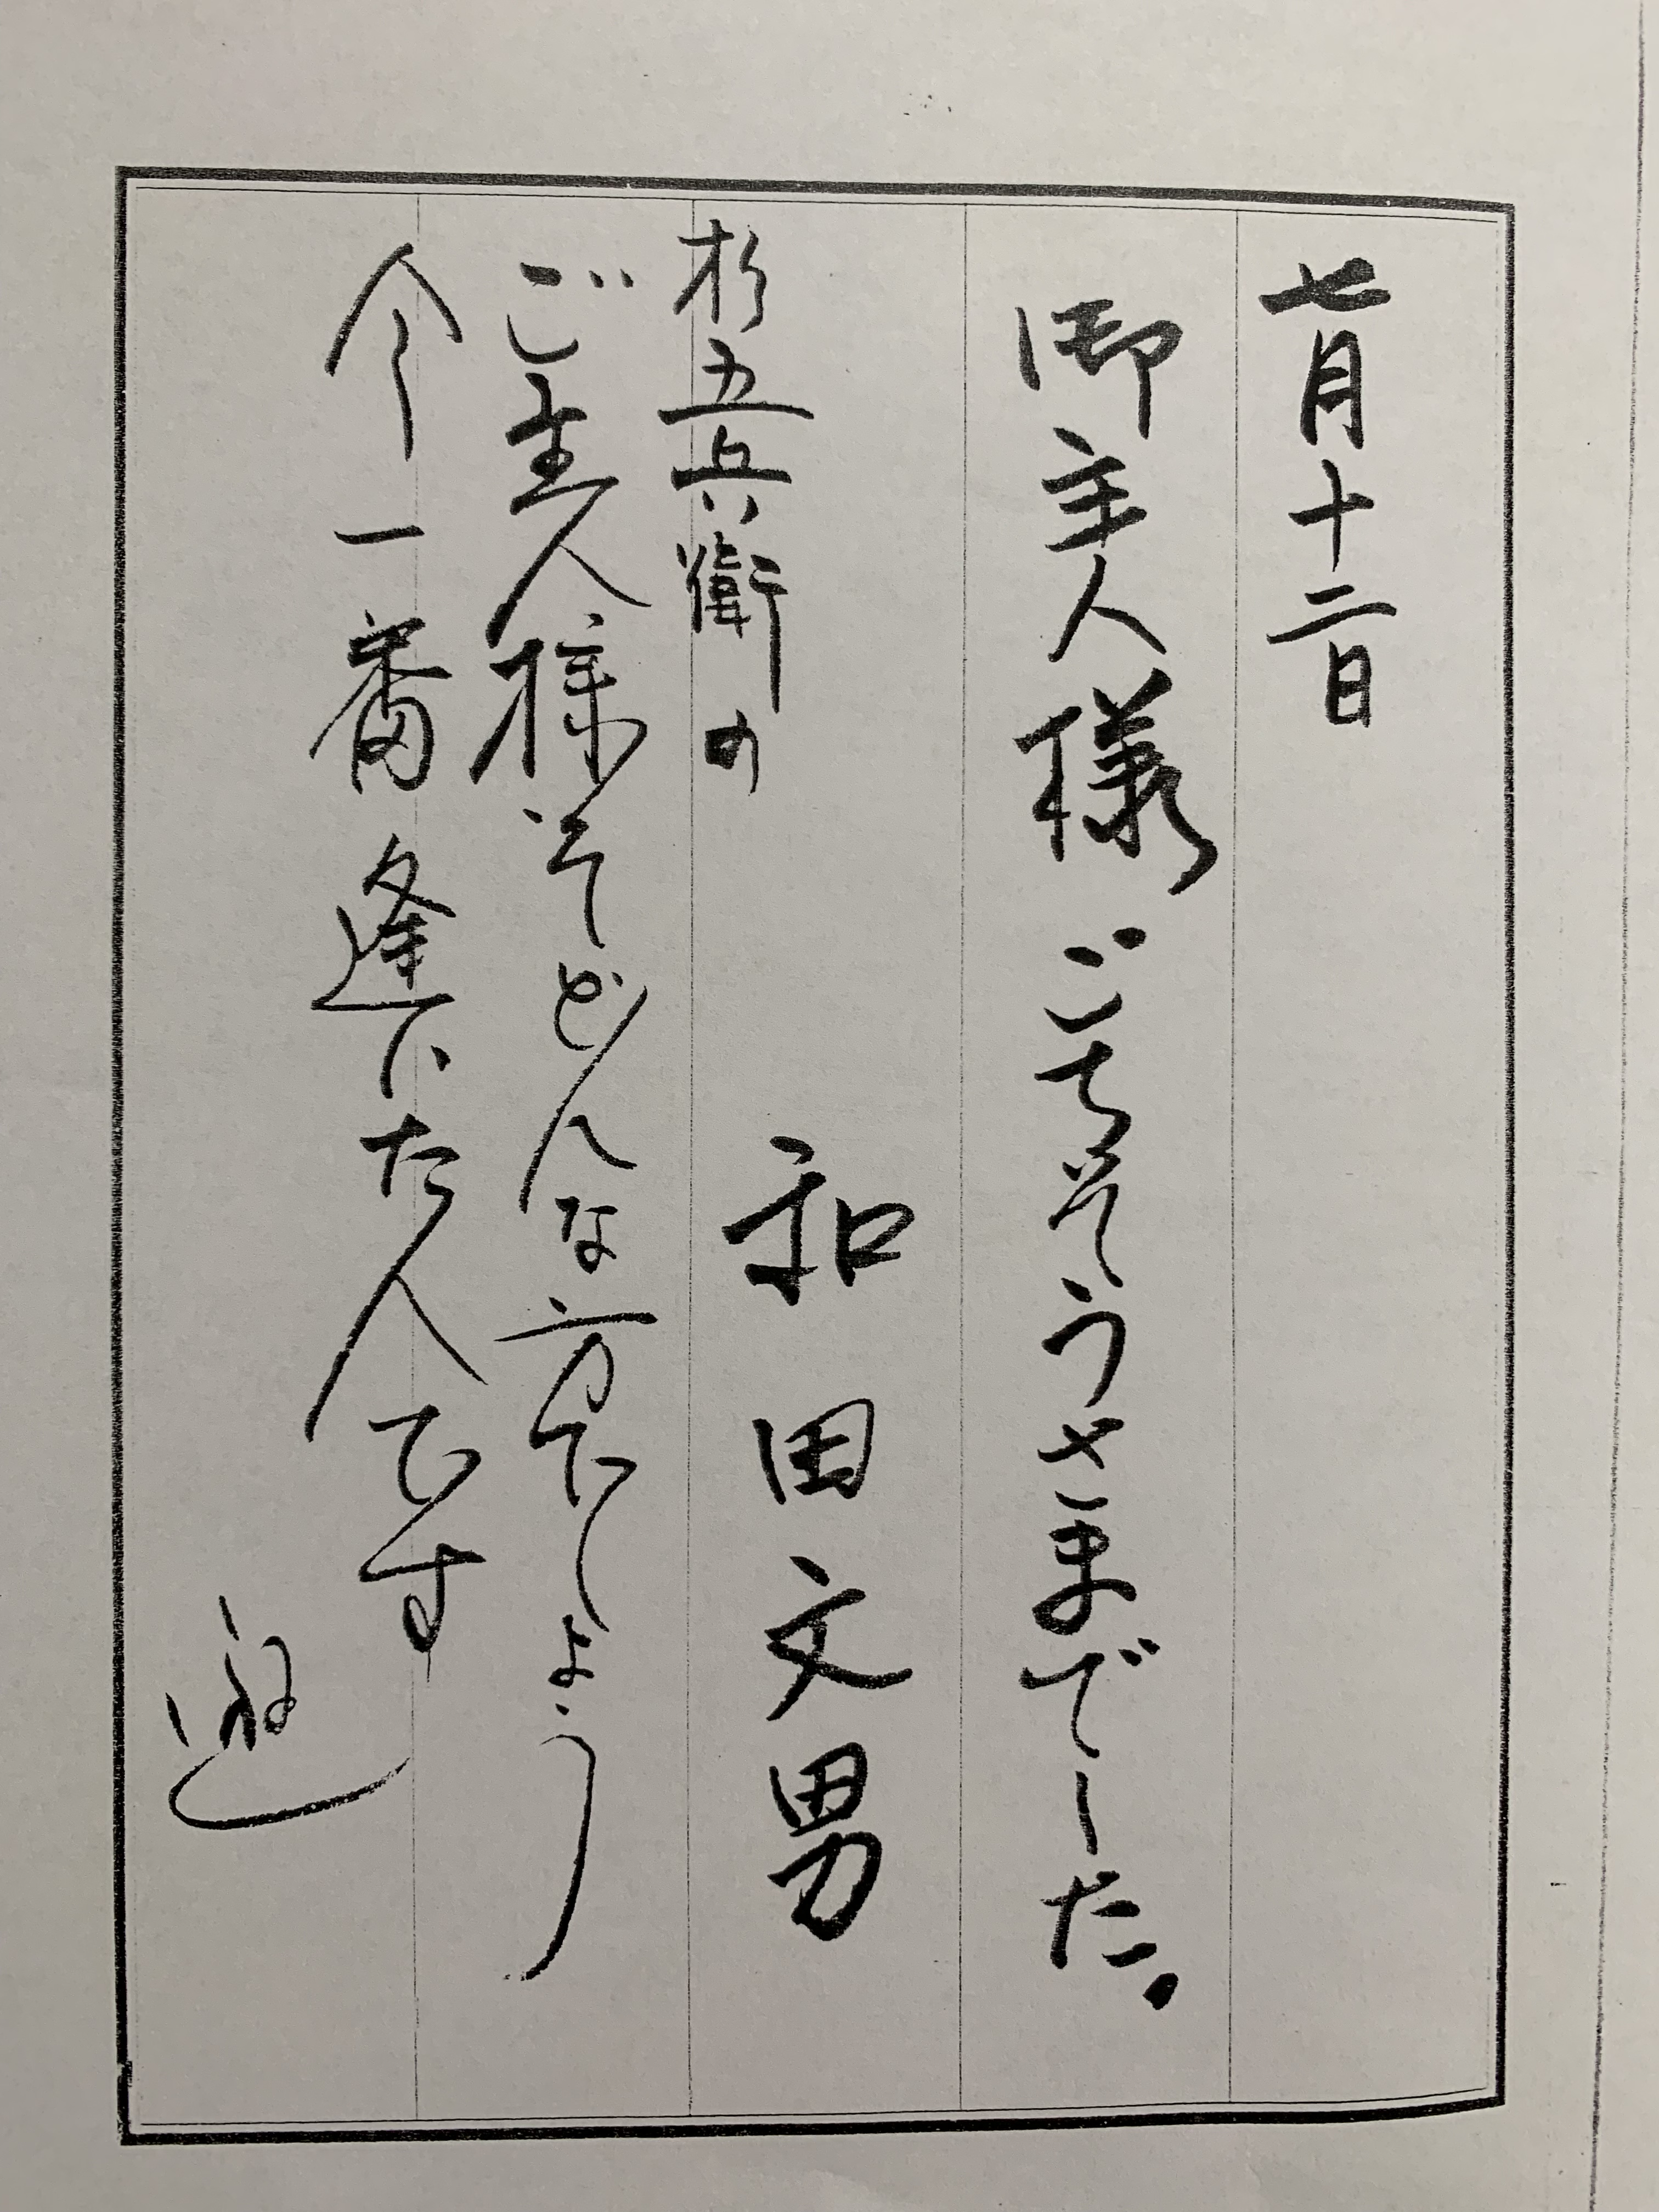 七月十二日
御主人様ごちそうさまでした。
和田文男
杉五兵衛の
ご主人様てどんな方でしょう
今一番逢いた人です